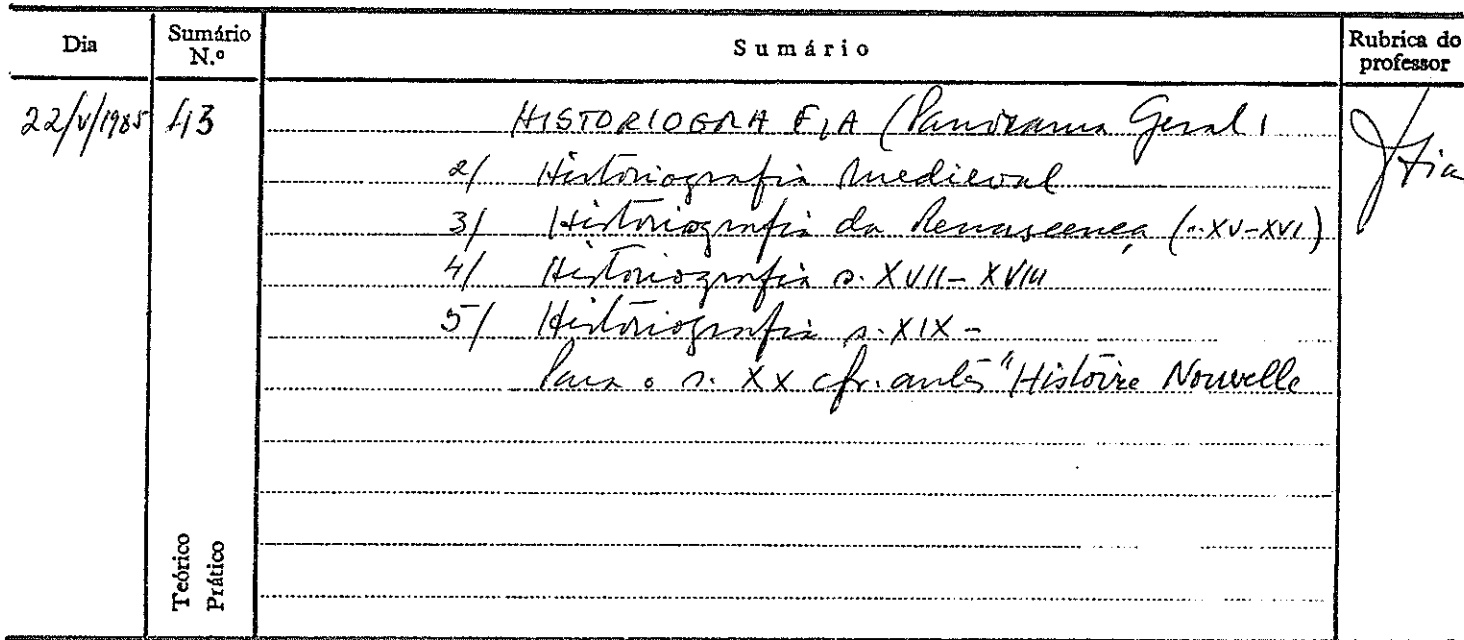 Dia
Sumário N.º
Sumário
Rubrica do professor
22/V/1985
43
HISTORIOGRAFIA (Panorama Geral)
2/ Historiografia Medieval
3/ Historiografia da Renascença (s. XV-XVI)
4/ Historiografia s. XVII-XVIII
5/ Historiografia s. XIX -
Para o s. XX cfr. antes "Histoire Nouvelle
Teórico
Prático